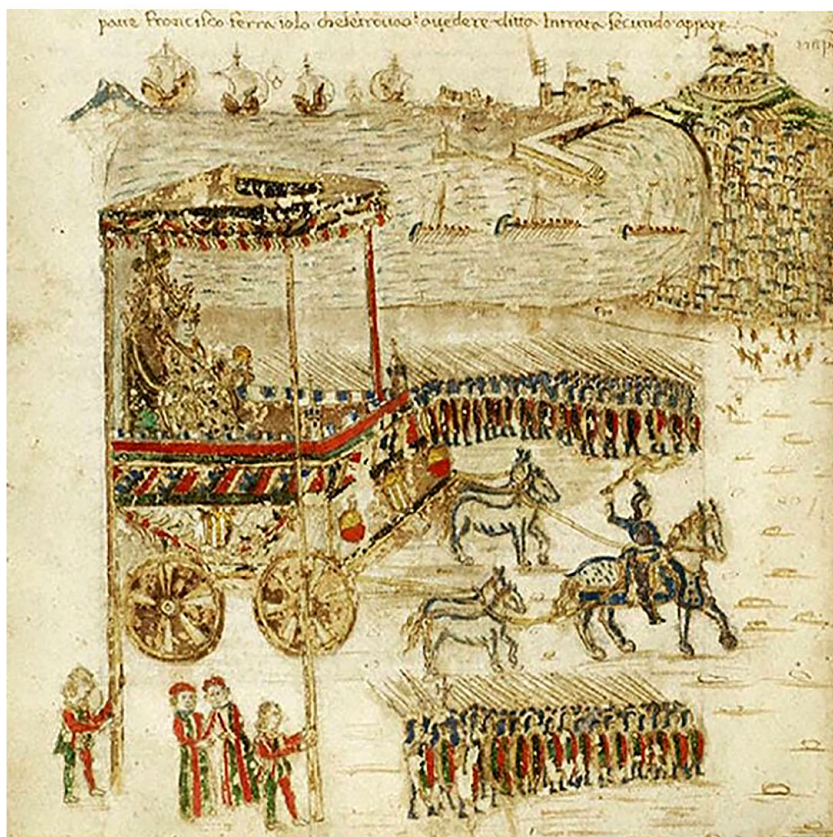 pave Francisco ferraiolo che se trovao a vedere ditta Intrata secundo appare